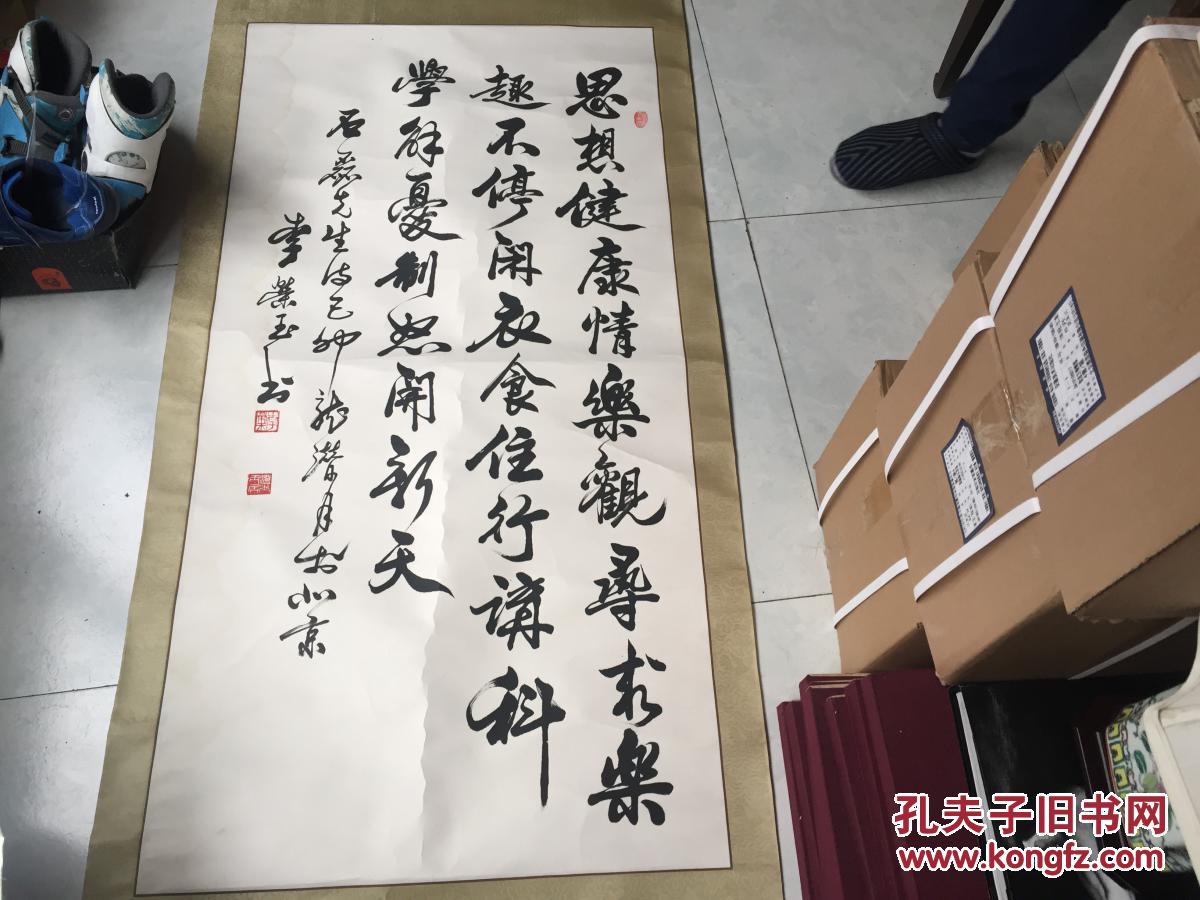 思想健康情樂觀尋求樂
趣不停閑衣食住行講科
學解憂制怒開新天
石磊先生诗己卯龙潜月于北京
李荣玉书
孔夫子旧书网
www.kongfz.com